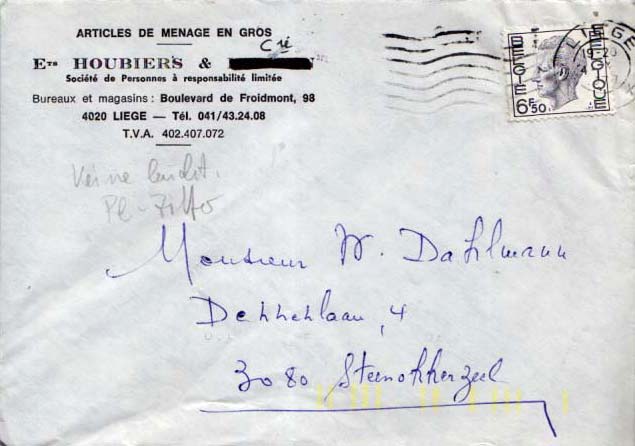 ARTICLES DE MENAGE EN GROS
Ets HOUBIERS & Cie
Société de Personnes à responsabilité limitée
Bureaux et magasins : Boulevard de Froidmont, 98
4020 LIEGE — Tél. 041/43.24.08
T.V.A. 402.407.072
BELGIE-BELGIQUE
6F50
LIEGE
Monsieur W. Dahlmann
Dennenlaan, 4
3080 Steenokkerzeel